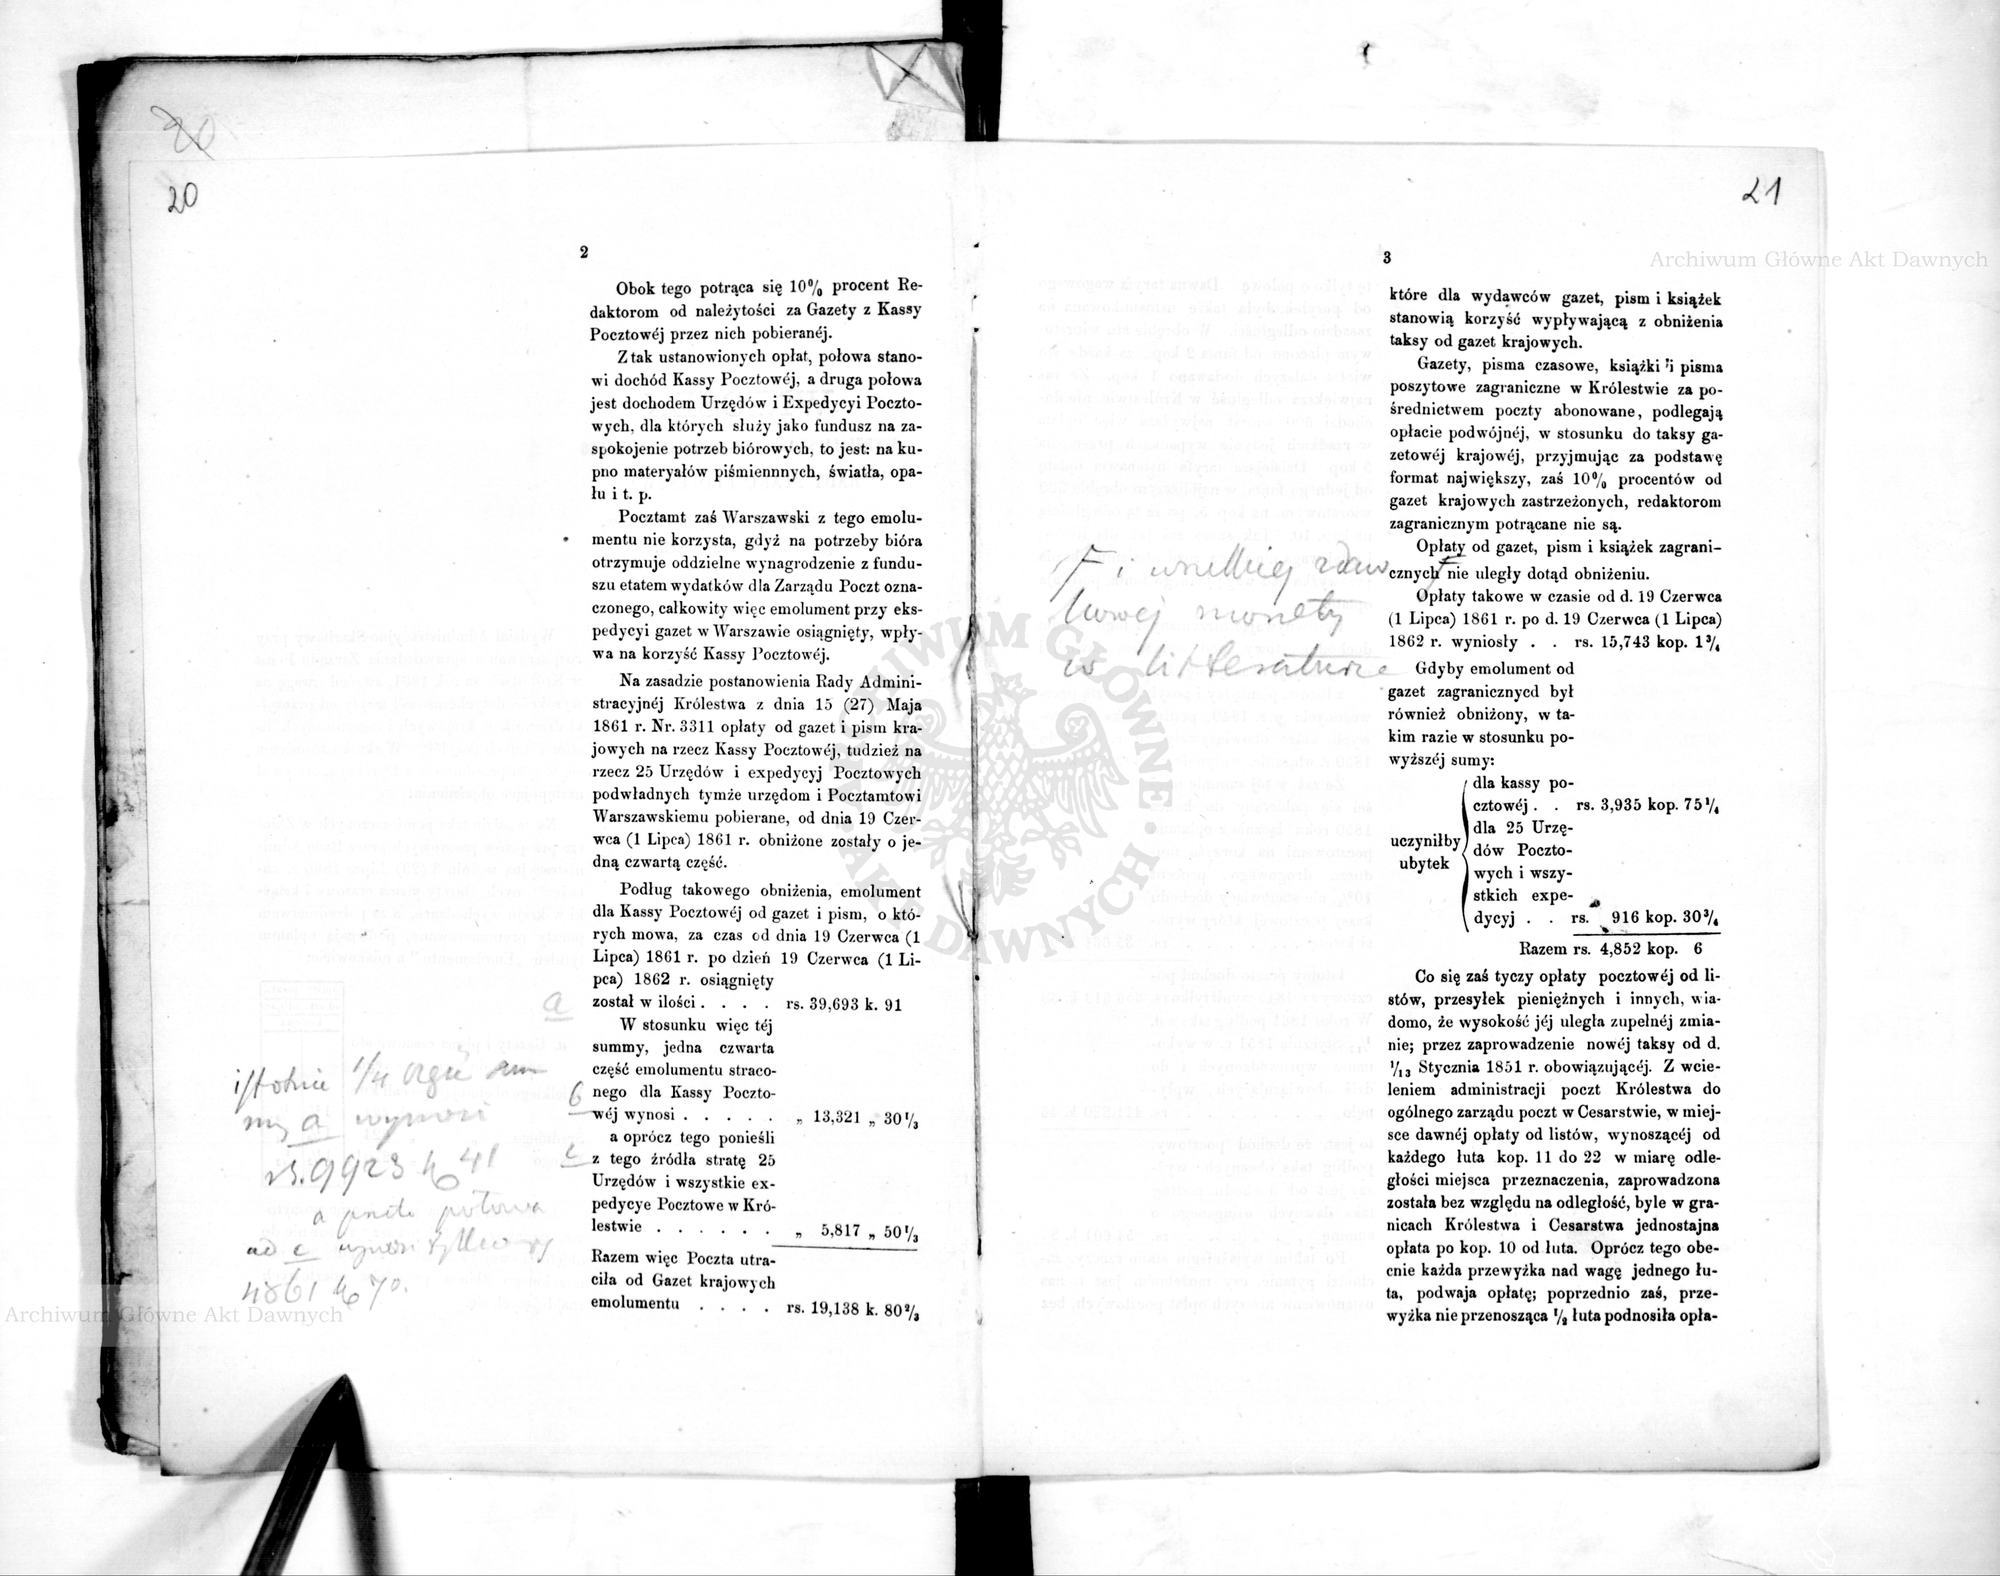 20
20
2
Obok tego potrąca się 10% procent Re-
daktorom od należytości za Gazety z Kassy
Pocztowéj przez nich pobieranéj.
Z tak ustanowionych opłat, połowa stano-
wi dochód Kassy Pocztowéj, a druga połowa
jest dochodem Urzędów i Expedycyi Poczto-
wych, dla których służy jako fundusz na za-
spokojenie potrzeb biórowych, to jest: na ku-
pno materyałów piśmiennnych, światła, opa-
łu i t. p.
Pocztamt zaś Warszawski z tego emolu-
mentu nie korzysta, gdyż na potrzeby bióra
otrzymuje oddzielne wynagrodzenie z fundu-
szu etatem wydatków dla Zarządu Poczt ozna-
czonego, całkowity więc emolument przy eks-
pedycyi gazet w Warszawie osiągnięty, wpły-
wa na korzyść Kassy Pocztowéj.
Na zasadzie postanowienia Rady Admini-
stracyjnéj Królestwa z dnia 15 (27) Maja
1861 r. Nr. 3311 opłaty od gazet i pism kra-
jowych na rzecz Kassy Pocztowéj, tudzież na
rzecz 25 Urzędów i expedycyj Pocztowych
podwładnych tymże urzędom i Pocztamtowi
Warszawskiemu pobierane, od dnia 19 Czer-
wca (1 Lipca) 1861 r. obniżone zostały o je-
dną czwartą część.
Podług takowego obniżenia, emolument
dla Kassy Pocztowéj od gazet i pism, o któ-
rych mowa, za czas od dnia 19 Czerwca (1
Lipca) 1861 r. po dzień 19 Czerwca (1 Li-
pca) 1862 r. osiągnięty
został w ilości . . . . rs. 39,693 k. 91
W stosunku więc téj
summy, jedna czwarta
część emolumentu straco-
nego dla Kassy Poczto-
wéj wynosi . . . . . „ 13,321 „ 30 1/3
a oprócz tego ponieśli
z tego źródła stratę 25
Urzędów i wszystkie ex-
pedycye Pocztowe w Kró-
lestwie . . . . . . „ 5,817 „ 50 1/3
Razem więc Poczta utra-
ciła od Gazet krajowych
emolumentu . . . . rs. 19,138 k. 80 2/3
a
b
c
istotnie 1/4 część sum
my a wynosi
rs. 9923 k 41
a połowa
ad c wynosi tylko rs
4861 k 70.
21
3
które dla wydawców gazet, pism i książek
stanowią korzyść wypływającą z obniżenia
taksy od gazet krajowych.
Gazety, pisma czasowe, książki i pisma
poszytowe zagraniczne w Królestwie za po-
średnictwem poczty abonowane, podlegają
opłacie podwójnéj, w stosunku do taksy ga-
zetowéj krajowéj, przyjmując za podstawę
format największy, zaś 10% procentów od
gazet krajowych zastrzeżonych, redaktorom
zagranicznym potrącane nie są.
Opłaty od gazet, pism i książek zagrani-
cznych nie uległy dotąd obniżeniu.
Opłaty takowe w czasie od d. 19 Czerwca
(1 Lipca) 1861 r. po d. 19 Czerwca (1 Lipca)
1862 r. wyniosły . . rs. 15,743 kop. 1 3/4
Gdyby emolument od
gazet zagranicznycd był
również obniżony, w ta-
kim razie w stosunku po-
wyższéj sumy:
uczyniłby
ubytek
dla kassy po-
cztowéj . . rs. 3,935 kop. 75 1/4
dla 25 Urzę-
dów Poczto-
wych i wszy-
stkich expe-
dycyj . . rs. 916 kop. 30 3/4
Razem rs. 4,852 kop. 6
Co się zaś tyczy opłaty pocztowéj od li-
stów, przesyłek pieniężnych i innych, wia-
domo, że wysokość jéj uległa zupełnéj zmia-
nie; przez zaprowadzenie nowéj taksy od d.
1/13 Stycznia 1851 r. obowiązującéj. Z wcie-
leniem administracji poczt Królestwa do
ogólnego zarządu poczt w Cesarstwie, w miej-
sce dawnéj opłaty od listów, wynoszącéj od
każdego łuta kop. 11 do 22 w miarę odle-
głości miejsca przeznaczenia, zaprowadzona
została bez względu na odległość, byle w gra-
nicach Królestwa i Cesarstwa jednostajna
opłata po kop. 10 od łuta. Oprócz tego obe-
cnie każda przewyżka nad wagę jednego łu-
ta, podwaja opłatę; poprzednio zaś, prze-
wyżka nie przenosząca 1/2 łuta podnosiła opła-
monety
w litteraturze
Archiwum Główne Akt Dawnych
Archiwum Główne Akt Dawnych
ARCHIWUM GŁÓWNE AKT DAWNYCH